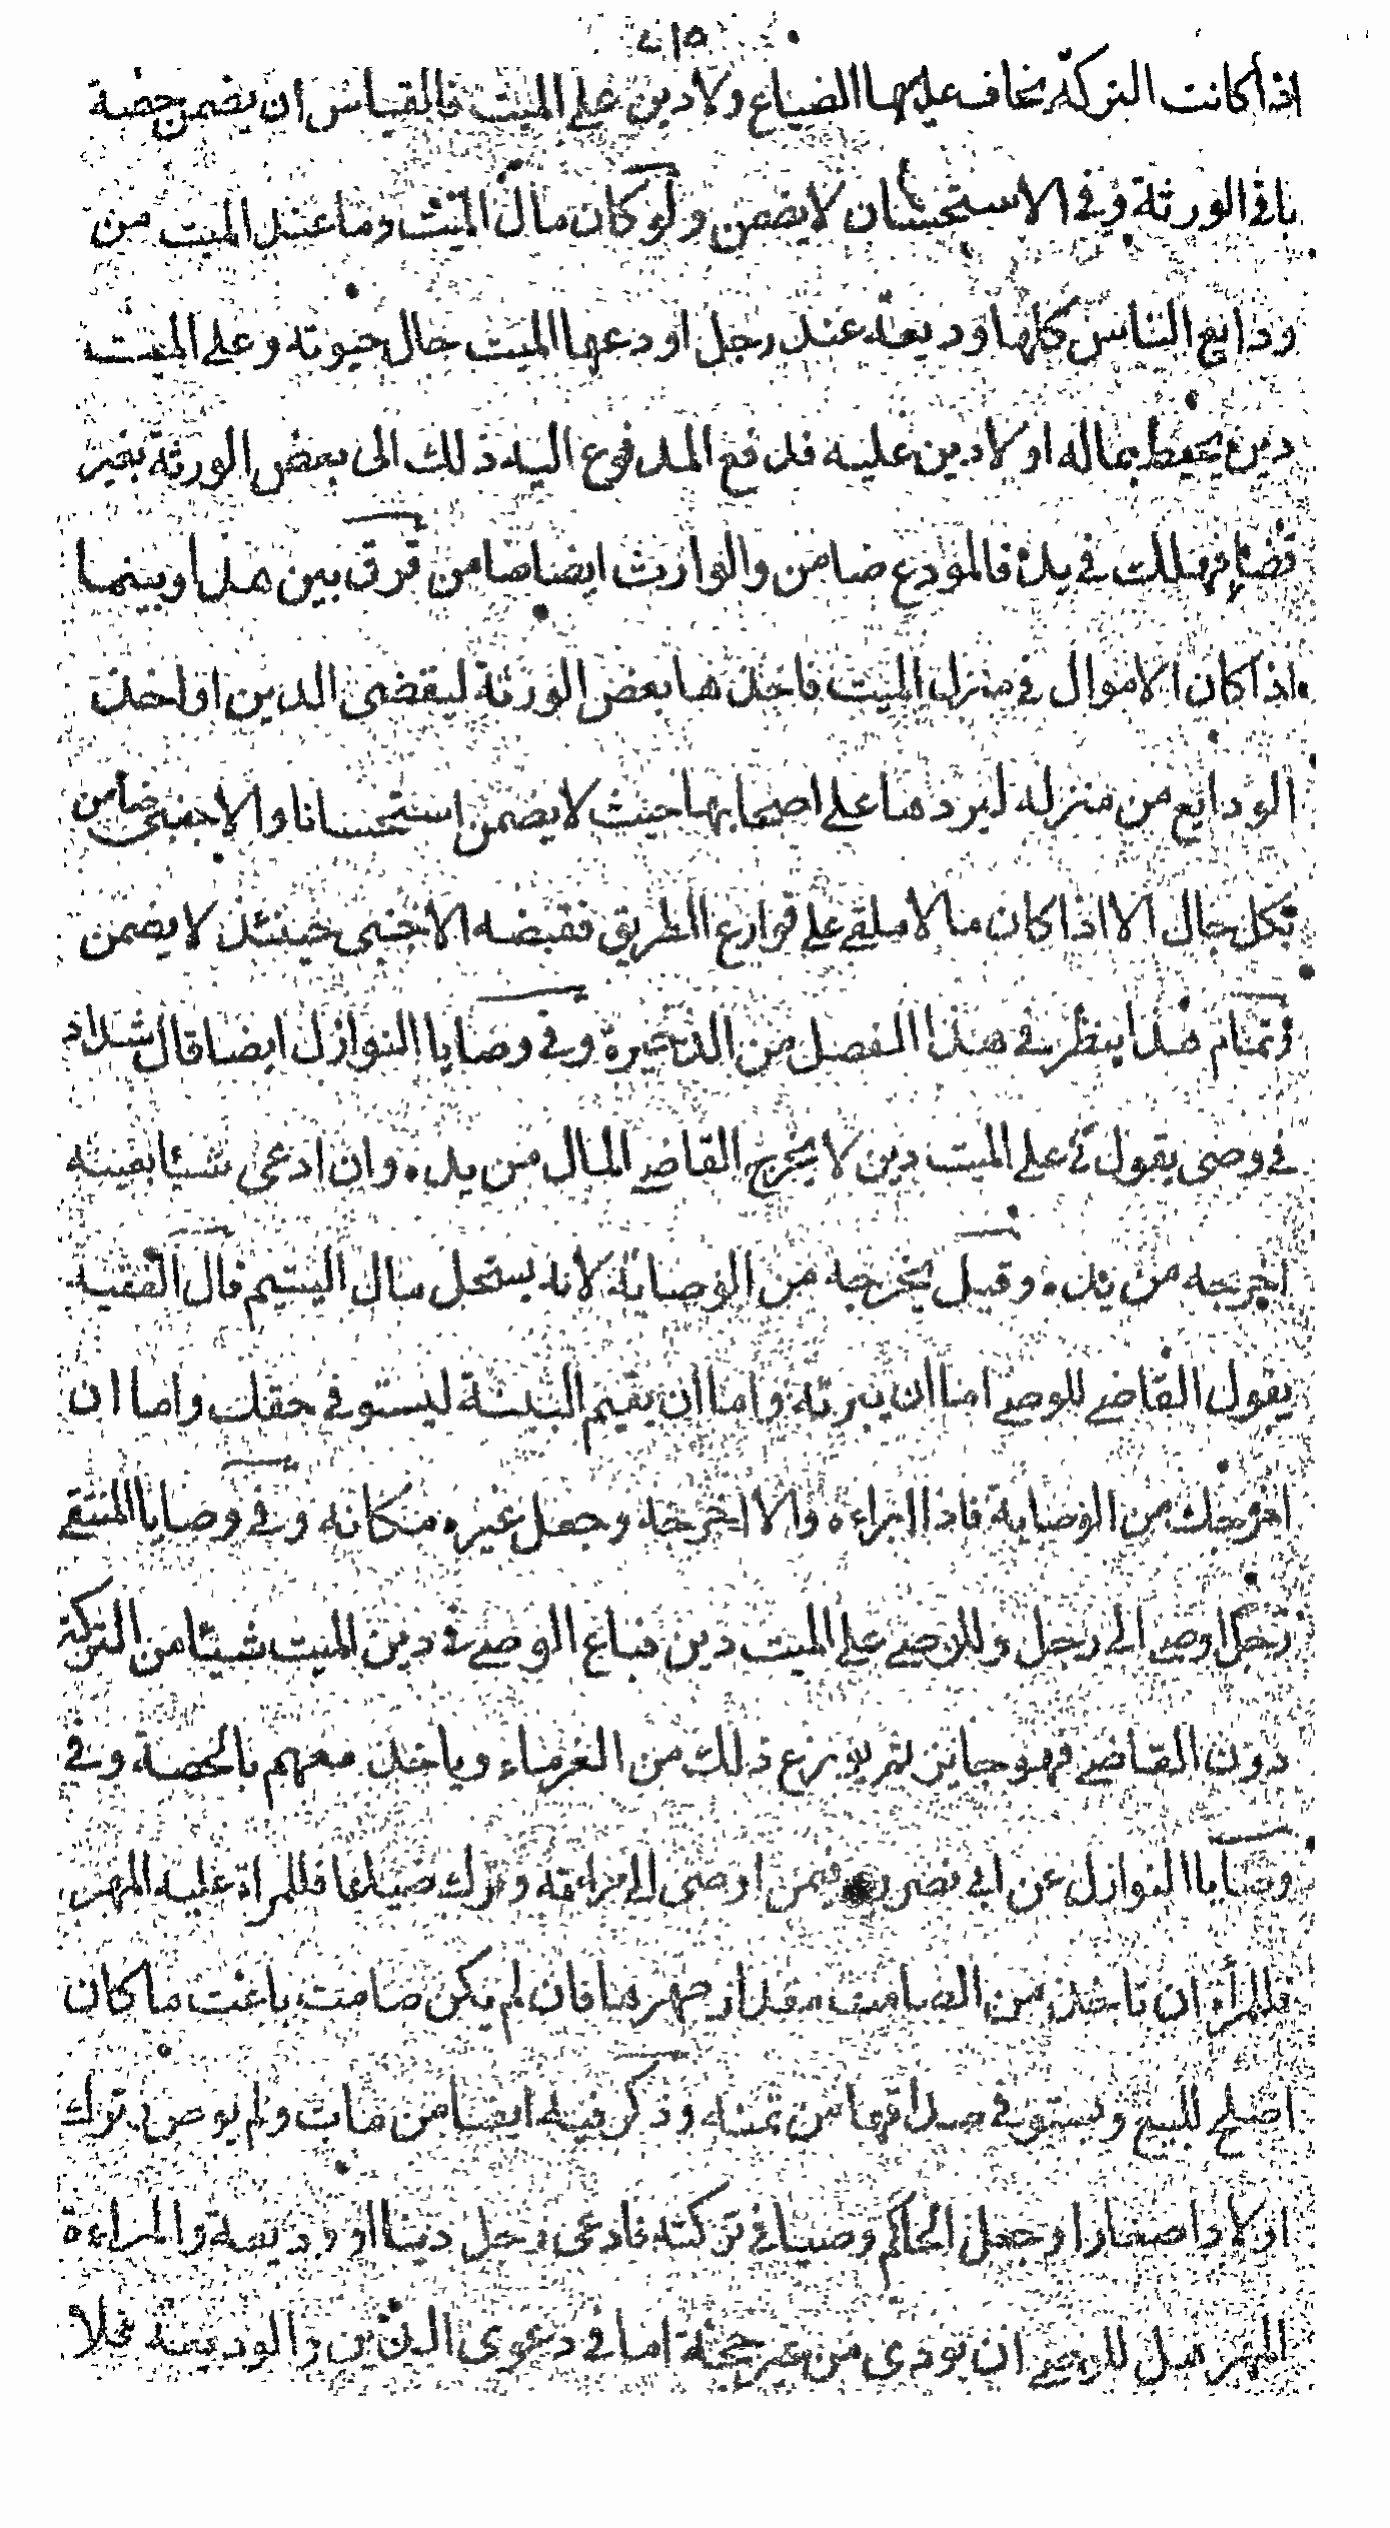 ٥١٤
اذا كانت التركة يخاف عليها الضياع ولا دين على الميت فالقياس ان يضمن حصة
باقي الورثة وفي الاستحسان لا يضمن ولو كان مال الميت وما عند الميت من
ودايع الناس كلها وديعة عند رجل اودعها الميت حال حيوته وعلى الميت
دين يحيط بماله او لا دين عليه فدفع المدفوع اليه ذلك الى بعض الورثة بغير
قضاء فهلكت في يده فالمودع ضامن والوارث ايضا ضامن فرق بين هذا وبينما
اذا كان الاموال في منزل الميت فاخذها بعض الورثة ليقضى الدين او اخذ
الودايع من منزله ليردها على اصحابها حيث لا يضمن استحسانا والاجنبى ضامن
بكل حال الا اذا كان مالا ملقى على قوارع الطريق فقبضه الاجنبى حينئذ لا يضمن
وتمام هذا ينظر في هذا الفصل من الذخيرة وفي وصايا النوازل ايضا قال شداد
في وصى يقول لى على الميت دين لا يخرج القاضي المال من يده وان ادعى شيئا بعينه
اخرجه من يده وقيل يخرجه من الوصاية لانه يستحل مال اليتيم قال الفقيه
يقول القاضي للوصي اما ان تبرئه واما ان تقيم البينة ليستوفي حقك واما ان
اخرجك من الوصاية فاذا ابراءه والا اخرجه وجعل غيره مكانه وفي وصايا المنتقى
رجل اوصى الى رجل وللوصي على الميت دين فباع الوصي في دين الميت شيئا من التركة
دون القاضي فهو جايز ثم يوزع ذلك من الغرماء وياخذ معهم بالحصة وفي
وصايا النوازل عن ابى نصر فيمن اوصى الى امراءته وترك ضياعا فللمراة عليه المهر
فللمراة ان تاخذ من الصامت مقدار مهرها فان لم يكن صامت باعت ما كان
اصلح للبيع وتستوفي صداقها من ثمنه وذكر فيه ايضا من مات ولم يوص وترك
اولادا صغارا وجعل الحاكم وصيا في تركته فادعى رجل دينا او وديعة والمراءة
المهر هل للوصي ان يودى من غير حجة اما في دعوى الدين والوديعة فلا